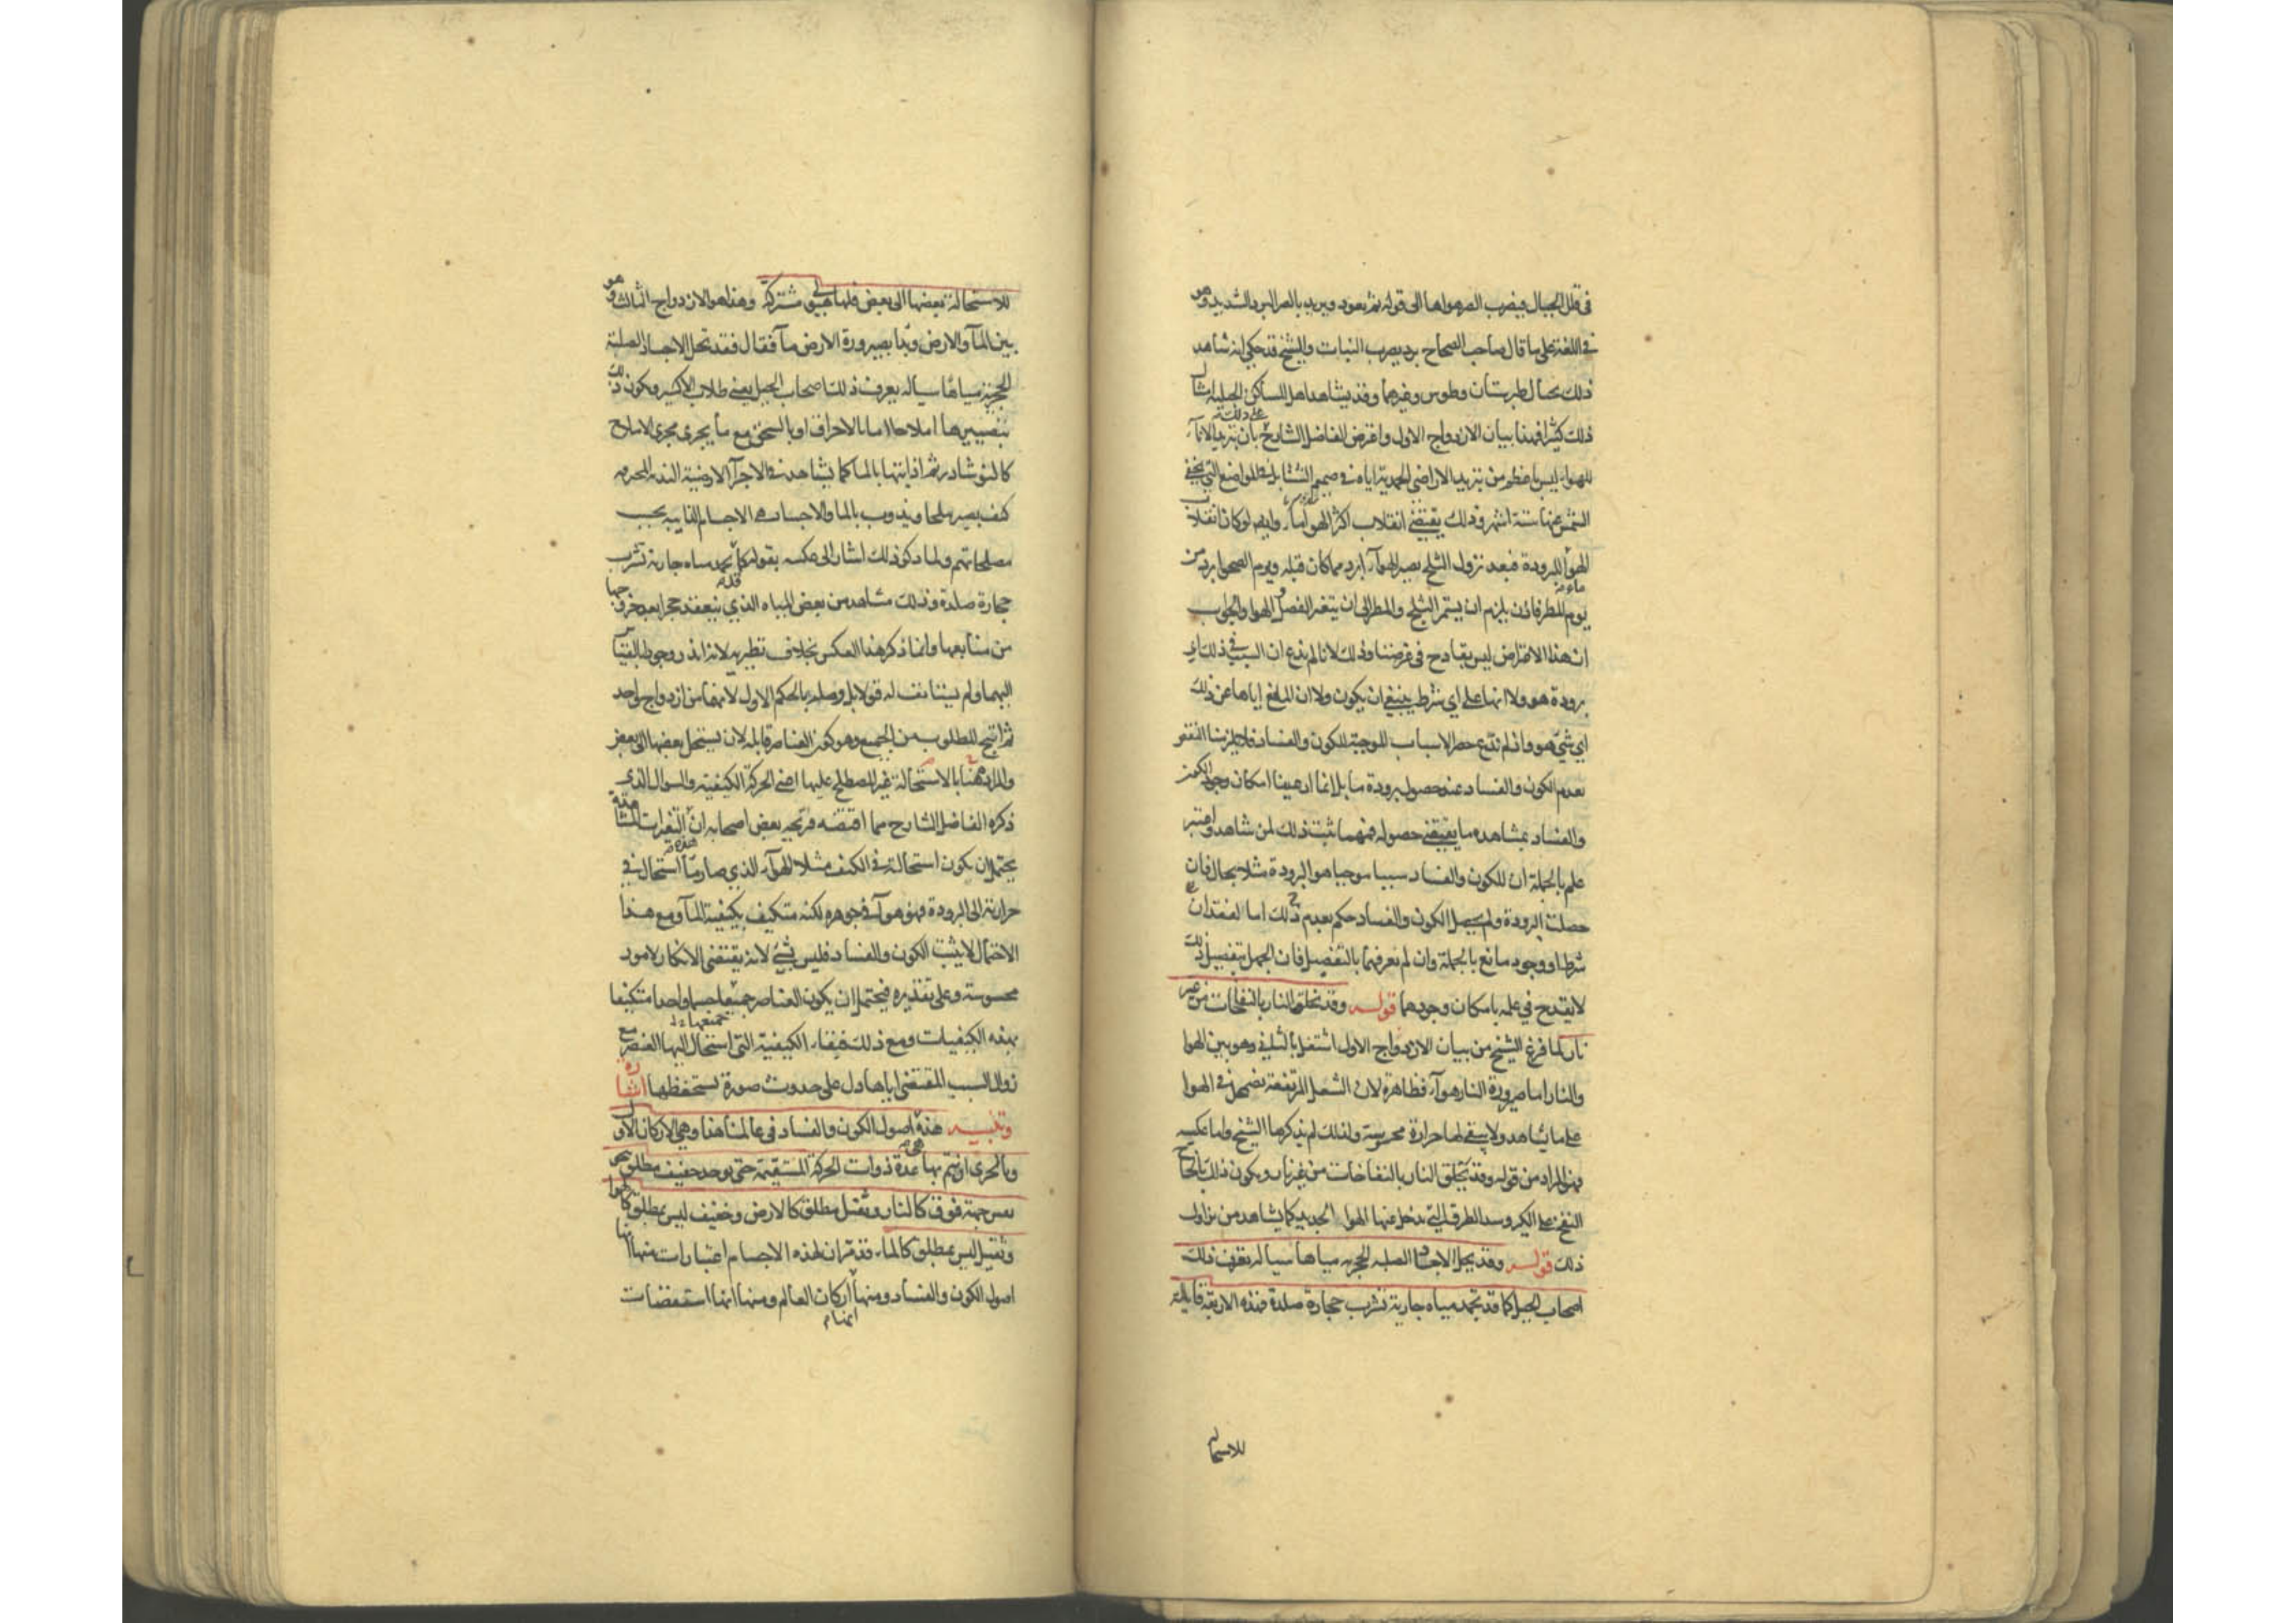 في قلل الجبال فيضرب الصر هواها الى قوله ثم يعود ويريد بالصر البرد الشديد وهو
في اللغة على ما قال صاحب الصحاح برد يضرب النبات والشيخ قد حكى انه شاهد
ذلك بجبال طبرستان وطوس وغيرهما وقد يشاهد اهل المساكن الجبلية امثال
ذلك كثيرا فهذا بيان الازدواج الاول واعترض الفاضل الشارح على ذلك بان تبريد الماء
للهواء ليس باعظم من تبريد الاراضي الجمدية اياه في صميم الشتا بل في المواضع التي يخفى
الشمس عنها ستة اشهر وذلك يقتضي انقلاب اكثر الهواء ماء وايضا لو كان انقلاب
الهواء للبرودة فبعد نزول الثلج يصير الهواء ابرد مما كان قبله ويوم الصحو ابرد من
يوم المطر فاذن يلزم ان يستمر الثلج والمطر الى ان يتغير الفصل و الهوا والجواب
ان هذا الاعتراض ليس بقادح في غرضنا وذلك لانا لم ندع ان السبب في ذلك اي
برودة هو ولا انها على اي شرط ينبغي ان يكون ولا ان المانع اياها عن ذلك
اي شي هو واذ لم ندع حصر الاسباب الموجبة للكون والفساد فلا يلزمنا النقض
بعدم الكون والفساد عند حصول برودة ما بل انما ادعينا امكان وجود الكون
والفساد بمشاهدة ما يقتضي حصوله فمهما ثبت ذلك لمن شاهد واعتبر
علم بالجملة ان للكون والفساد سببا موجبا هو البرودة مثلا بحال فان
حصلت البرودة ولم يحصل الكون والفساد حكم بعدم ذلك اما لفقدان
شرط او وجود مانع بالجملة وان لم نعرفهما بالتفصيل فان الجهل بتفصيل ذلك
لا يقدح في علمه بامكان وجودهما قوله وقد تخلق النار بالنفاخات من غير
نار لما فرغ الشيخ من بيان الازدواج الاول اشتغل بالثاني وهو بين الهوا
والنار اما صيرورة النار هواء فظاهرة لان الشعل المرتفعة تضمحل في الهوا
على ما يشاهد ولا يبقى لها حرارة محسوسة ولذلك لم يذكرها الشيخ واما عكسه
فهو المراد من قوله وقد تخلق النار بالنفاخات من غير نار ويكون ذلك بالحاح
النفخ على الكير وسد الطرق التي يدخل عنها الهوا الجديد كما يشاهد من يزاول
ذلك قوله وقد يحل الاجساد الصلبة الحجرية مياها سيالة يعرف ذلك
اصحاب الحيل كما قد تجمد مياه جارية تشرب حجارة صلدة فهذه الاربعة قابلة
للاستحالة
للاستحالة بعضها الى بعض فلها هيولى مشتركة وهذا هو الازدواج الثالث وهو
بين الماء والارض وبدا بصيرورة الارض ماء فقال فقد تحل الاجساد الصلبة
الحجرية مياها سيالة يعرف ذلك اصحاب الحيل يعني طلاب الاكسير ويكون ذلك
بتصييرها املاحا اما بالاحراق او بالسحق مع ما يجري مجرى الاملاح
كالنوشادر ثم اذابتها بالماء كما يشاهد في الاجزاء الارضية الندية المحرقة
كيف يصير ملحا ويذوب بالماء والاجساد هي الاجسام الذايبة بحسب
مصطلحاتهم ولما ذكر ذلك اشار الى عكسه بقوله كما تجمد مياه جارية تشرب
حجارة صلدة وذلك مشاهد من بعض المياه الذي ينعقد حجرا بعد خروجها
من منابعها وانما ذكر هذا العكس بخلاف نظيريه لانه
اليهما ولم يستانف له قولا بل وصله بالحكم الاول لانهما من ازدواج واحد
ثم انتج المطلوب من الجميع وهو كون العناصر قابلة لان يستحيل بعضها الى بعض
والمراد هنا بالاستحالة غير المصطلح عليها اعني الحركة الكيفية والسوال الذي
ذكره الفاضل الشارح مما بعض اصحابه ان التغيرات المشاهدة
يحتمل ان يكون استحالة في الكيف مثلا الهواء الذي صار ماء استحال في
حرارته الى البرودة فهو هواء في جوهره لكنه متكيف بكيفية الماء ومع هذا
الاحتمال لا يثبت الكون والفساد فليس بشي لانه يقتضي الانكار لامور
محسوسة وعلى تقديره فيحتمل ان يكون العناصر جميعها جسما واحدا متكيفا
بهذه الكيفيات ومع ذلك فبقاء الكيفية التي استحال اليها العنصر مع
زوال السبب المقتضي اياها دل على حدوث صورة تستحفظها اشارة
وتنبيه هذه اصول الكون والفساد في عالمنا هذا وهي الاركان الاول
وبالحرى ان يتم بها عدة ذوات الحركة المستقيمة حتى يوجد خفيف مطلق نحو
نفس جهة فوق كالنار وثقيل مطلق كالارض وخفيف ليس بمطلق كالهوا
وثقيل ليس بمطلق كالماء قد مر ان لهذه الاجسام اعتبارات منها انها
اصول الكون والفساد ومنها انها اركان العالم ومنها انها استقصات